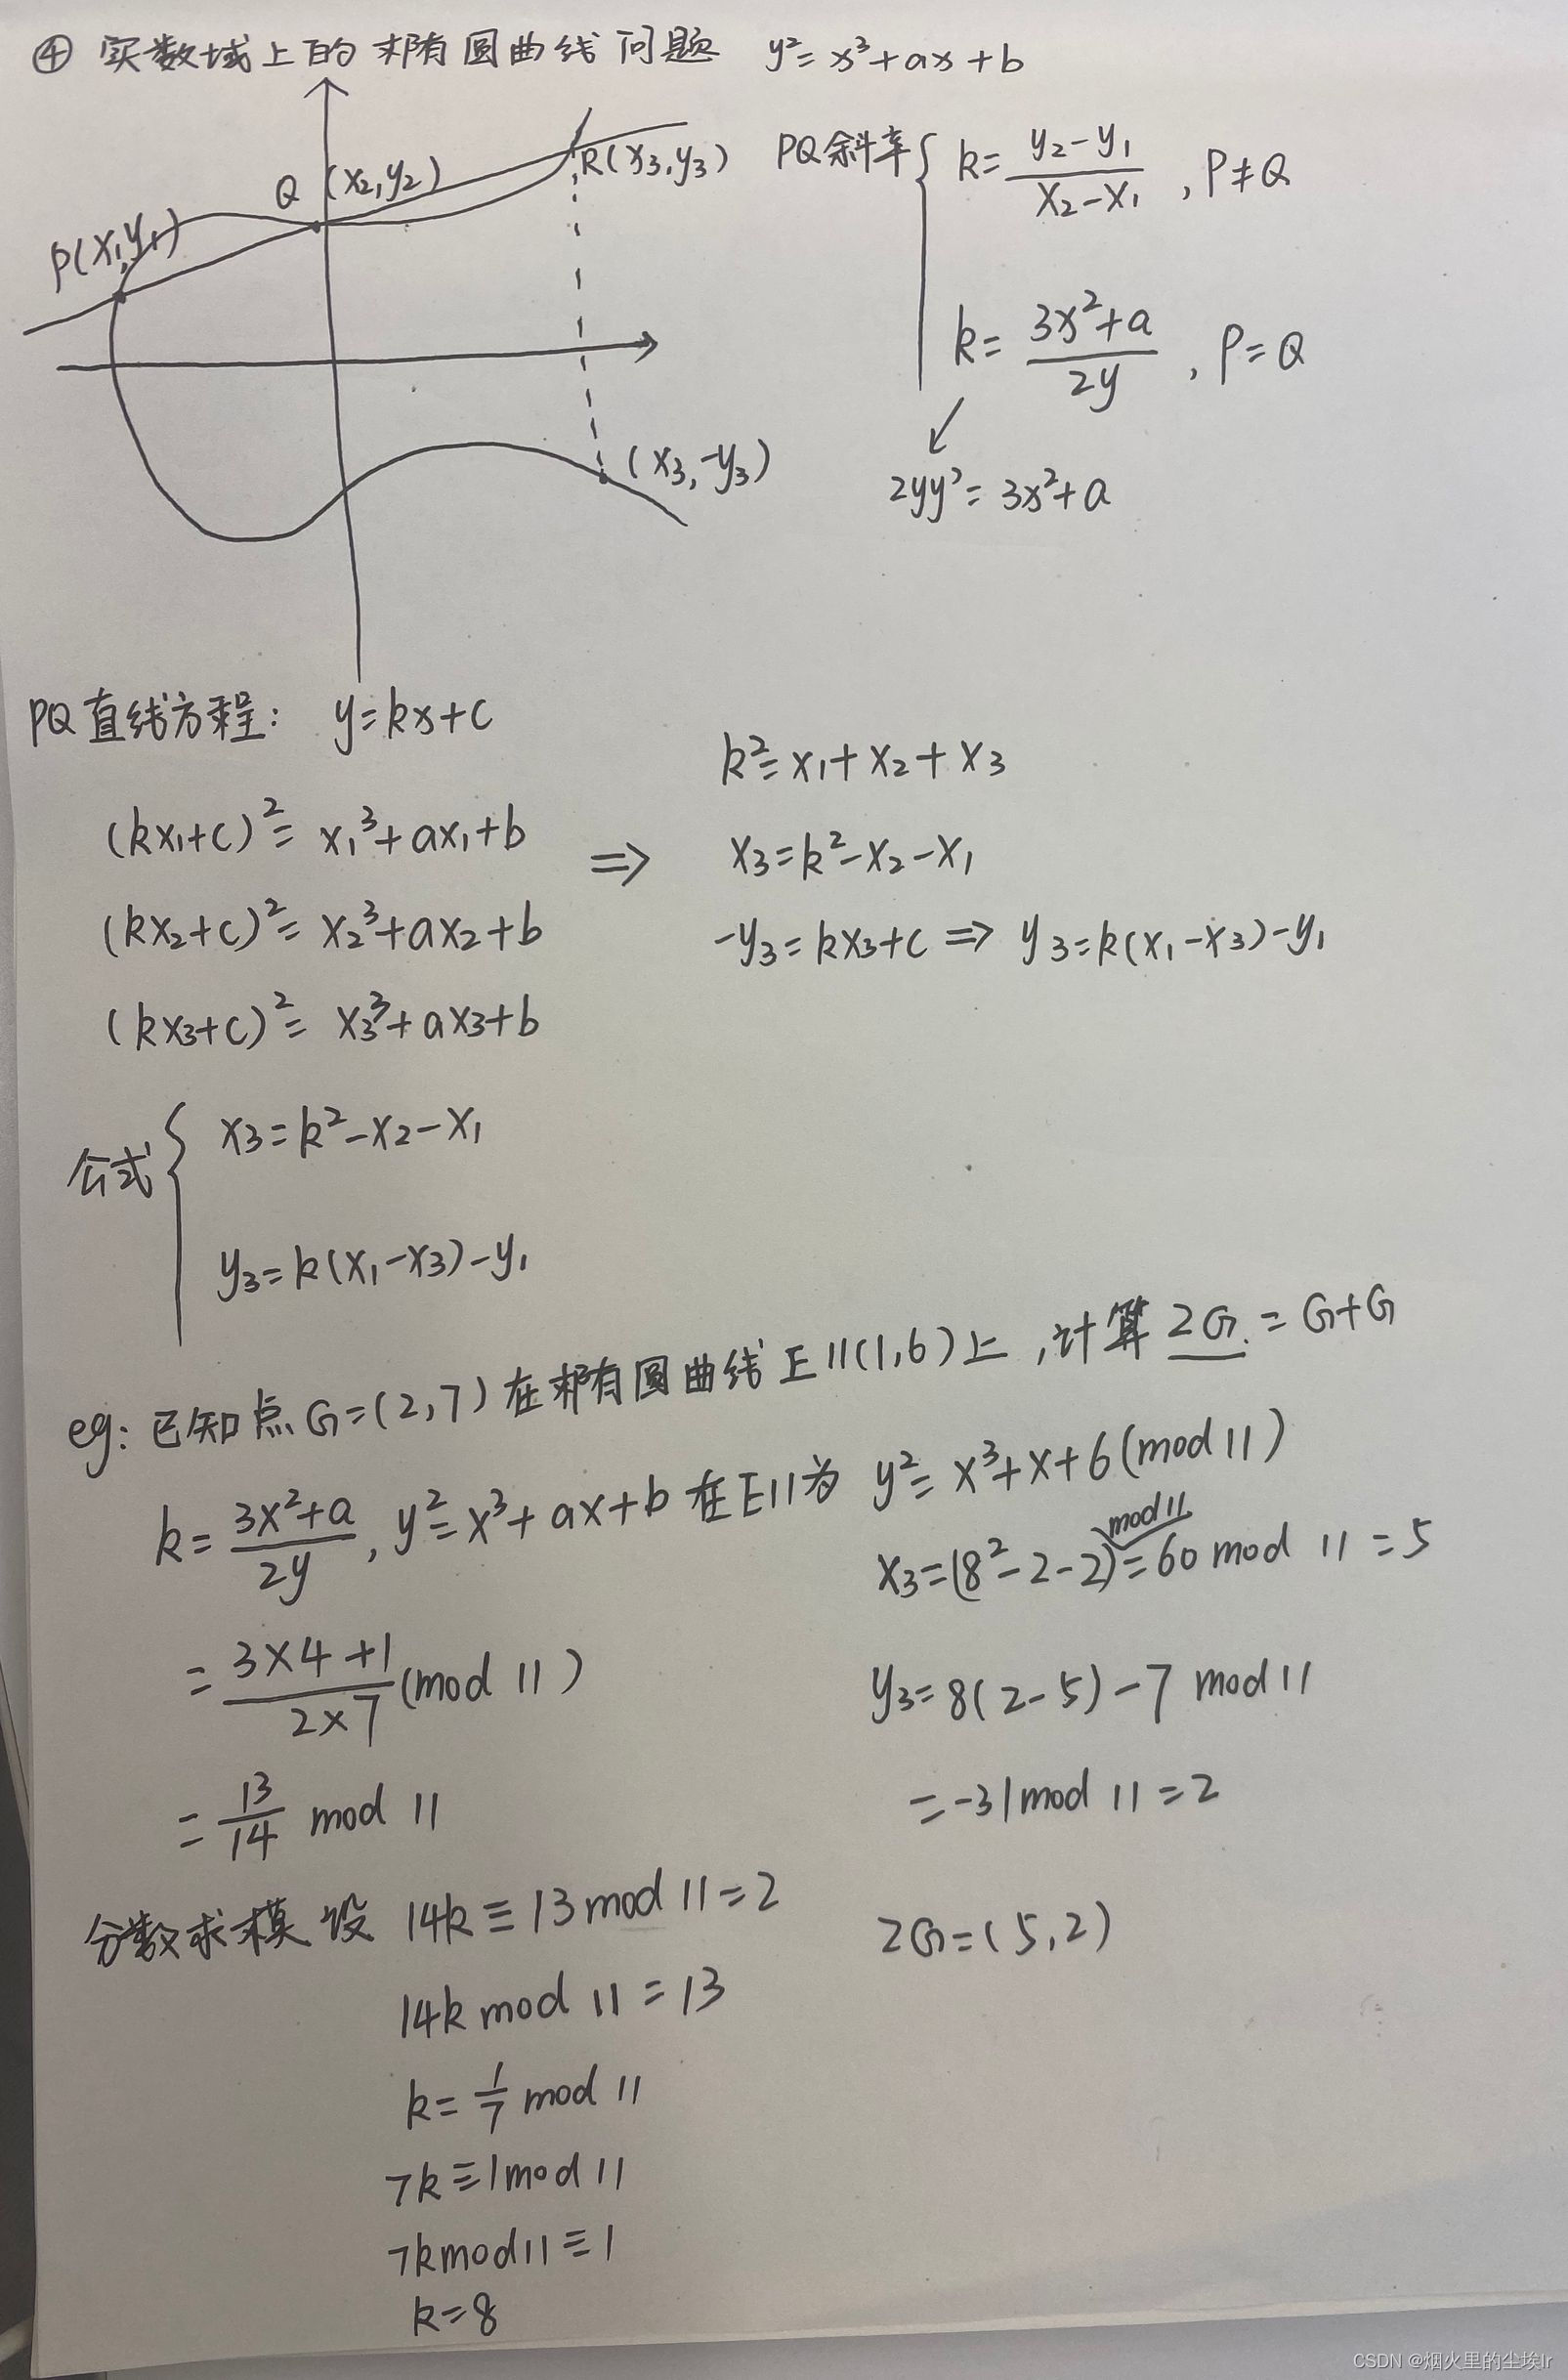 ④ 实数域上的椭圆曲线问题 y²=x³+ax+b
Q (x₂,y₂)
R(x₃,y₃)
P(x₁,y₁)
(x₃,-y₃)
PQ斜率 { k=(y₂-y₁)/(x₂-x₁) , P≠Q
k=(3x²+a)/(2y) , P=Q
↙
2yy'=3x²+a
PQ直线方程: y=kx+c
(kx₁+c)²=x₁³+ax₁+b
(kx₂+c)²=x₂³+ax₂+b
(kx₃+c)²=x₃³+ax₃+b
⇒
k²=x₁+x₂+x₃
x₃=k²-x₂-x₁
-y₃=kx₃+c ⇒ y₃=k(x₁-x₃)-y₁
公式 { x₃=k²-x₂-x₁
y₃=k(x₁-x₃)-y₁
eg: 已知点G=(2,7)在椭圆曲线E11(1,6)上,计算2G=G+G
k=(3x²+a)/(2y), y²=x³+ax+b 在E11为 y²=x³+x+6(mod 11)
=(3×4+1)/(2×7)(mod 11)
=13/14 mod 11
分数求模 设 14k≡13mod 11=2
14k mod 11=13
k=1/7 mod 11
7k≡1mod 11
7kmod11≡1
k=8
mod 11
x₃=(8²-2-2)=60 mod 11=5
y₃=8(2-5)-7 mod 11
=-31mod 11=2
2G=(5,2)
CSDN @烟火里的尘埃lr